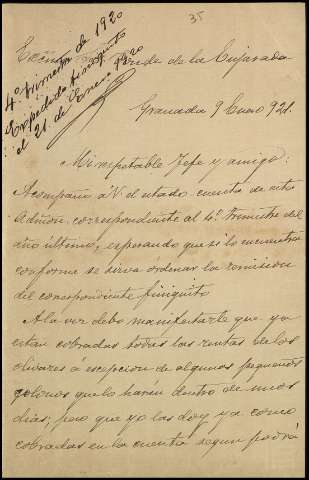 35
4º trimestre de 1920
Expedido finiquito
el 21 de Enero 1920
Conde de la Enjarada
Granada 9 Enero 921.
Mi respetable Jefe y amigo:
Acompaño á V. el estado cuenta de esta
Admon. correspondiente al 4º trimestre del
año último, esperando que si lo encuentra
conforme se sirva órdenar la remision
del correspondiente finiquito.
A la vez debo manifestarle que ya
estan cobradas todas las rentas de los
olivares á escepcion de algunos pequeños
colonos que lo harán dentro de unos
dias; pero que yo las doy ya como
cobradas en la cuenta segun podrá